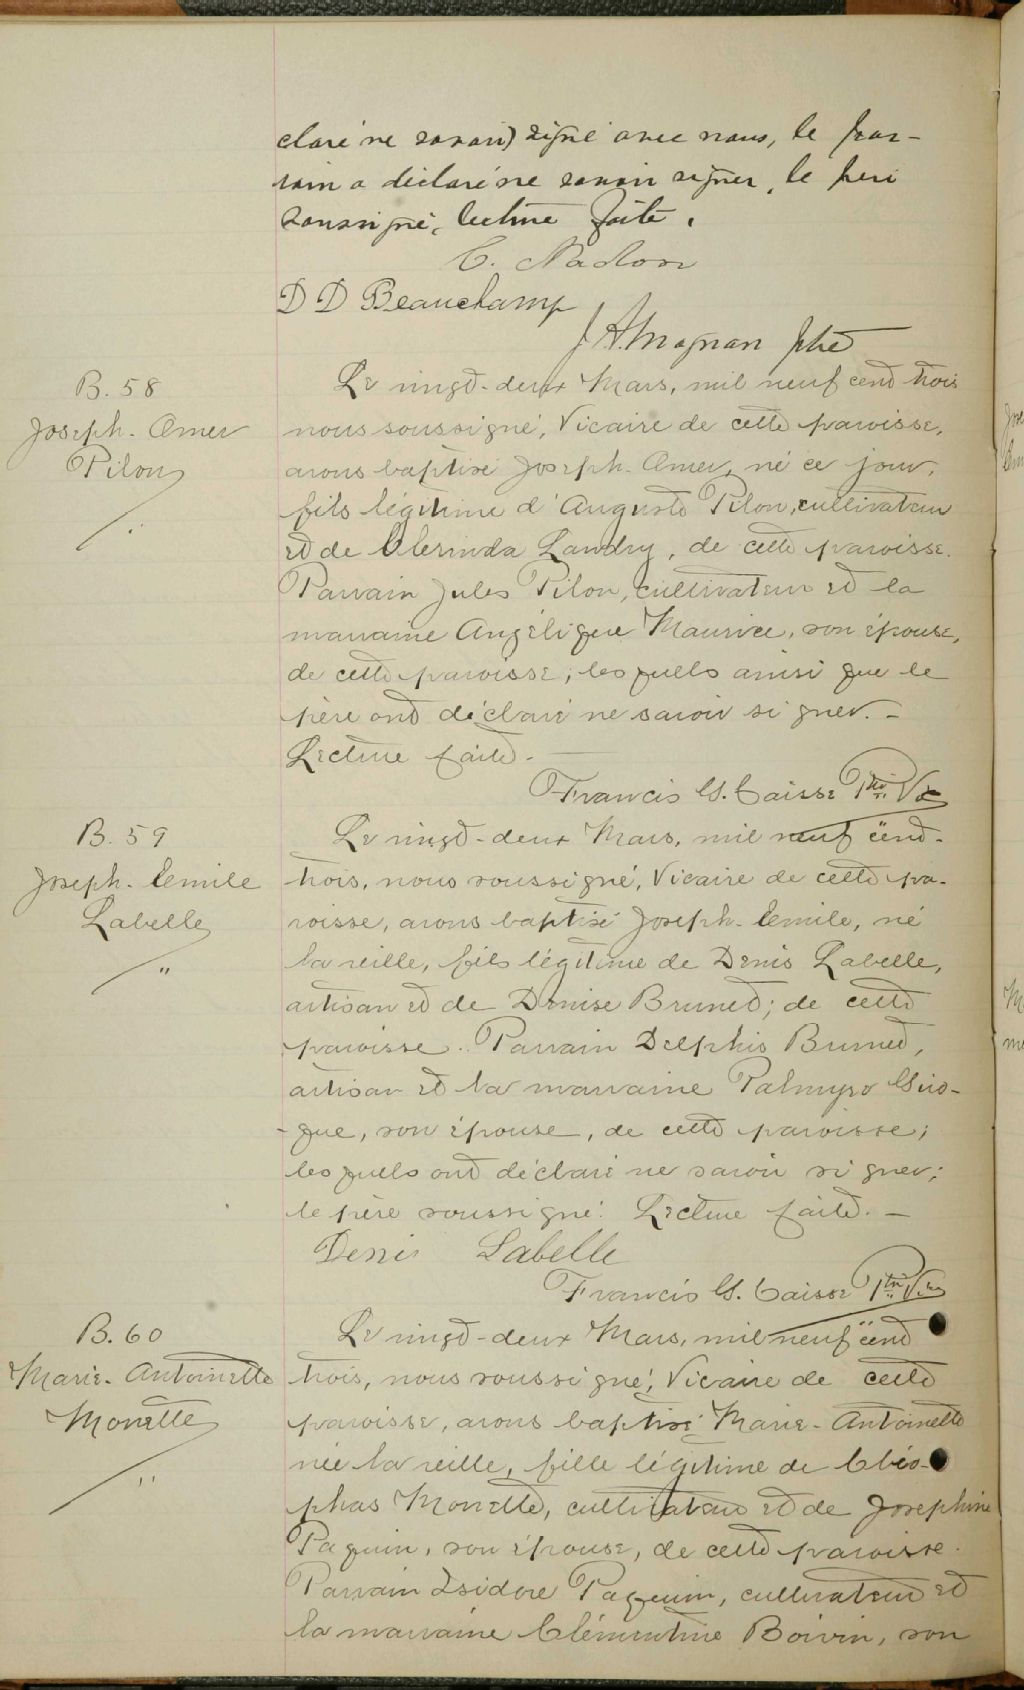 claré ne savoir) signé avec nous, le par-
rain a déclaré ne savoir signer, le père
soussigné, lecture faite.
C. Nadon
D D Beauchamp
J.A. Magnan ptre
B. 58
Joseph. Omer
Pilon
Le vingt-deux Mars, mil neuf cent trois
nous soussigné, Vicaire de cette paroisse,
avons baptisé Joseph. Omer, né ce jour,
fils légitime d'Auguste Pilon, cultivateur
et de Clerinda Landry, de cette paroisse.
Parrain Jules Pilon, cultivateur et la
marraine Angélique Maurice, son épouse,
de cette paroisse; lesquels ainsi que le
père ont déclaré ne savoir signer. -
Lecture faite. -
Francis G. Caisse Ptre Vic
B. 59
Joseph. Emile
Labelle
"
Le vingt-deux Mars, mil neuf cent-
trois, nous soussigné, Vicaire de cette pa-
roisse, avons baptisé Joseph. Emile, né
la veille, fils légitime de Denis Labelle,
artisan et de Denise Brunet; de cette
paroisse. Parrain Delphis Brunet,
artisan et la marraine Palmyre Giro-
-que, son épouse, de cette paroisse;
lesquels ont déclaré ne savoir signer;
le père soussigné. Lecture faite. -
Denis Labelle
Francis G. Caisse Ptre Vic
B. 60
Marie-Antoinette
Monette
"
Le vingt-deux Mars, mil neuf cent
trois, nous soussigné, Vicaire de cette
paroisse, avons baptisé Marie-Antoinette
née la veille, fille légitime de Cléo-
phas Monette, cultivateur et de Josephine
Paquin, son épouse, de cette paroisse.
Parrain Isidore Paquin, cultivateur et
la marraine Clémentine Boivin, son